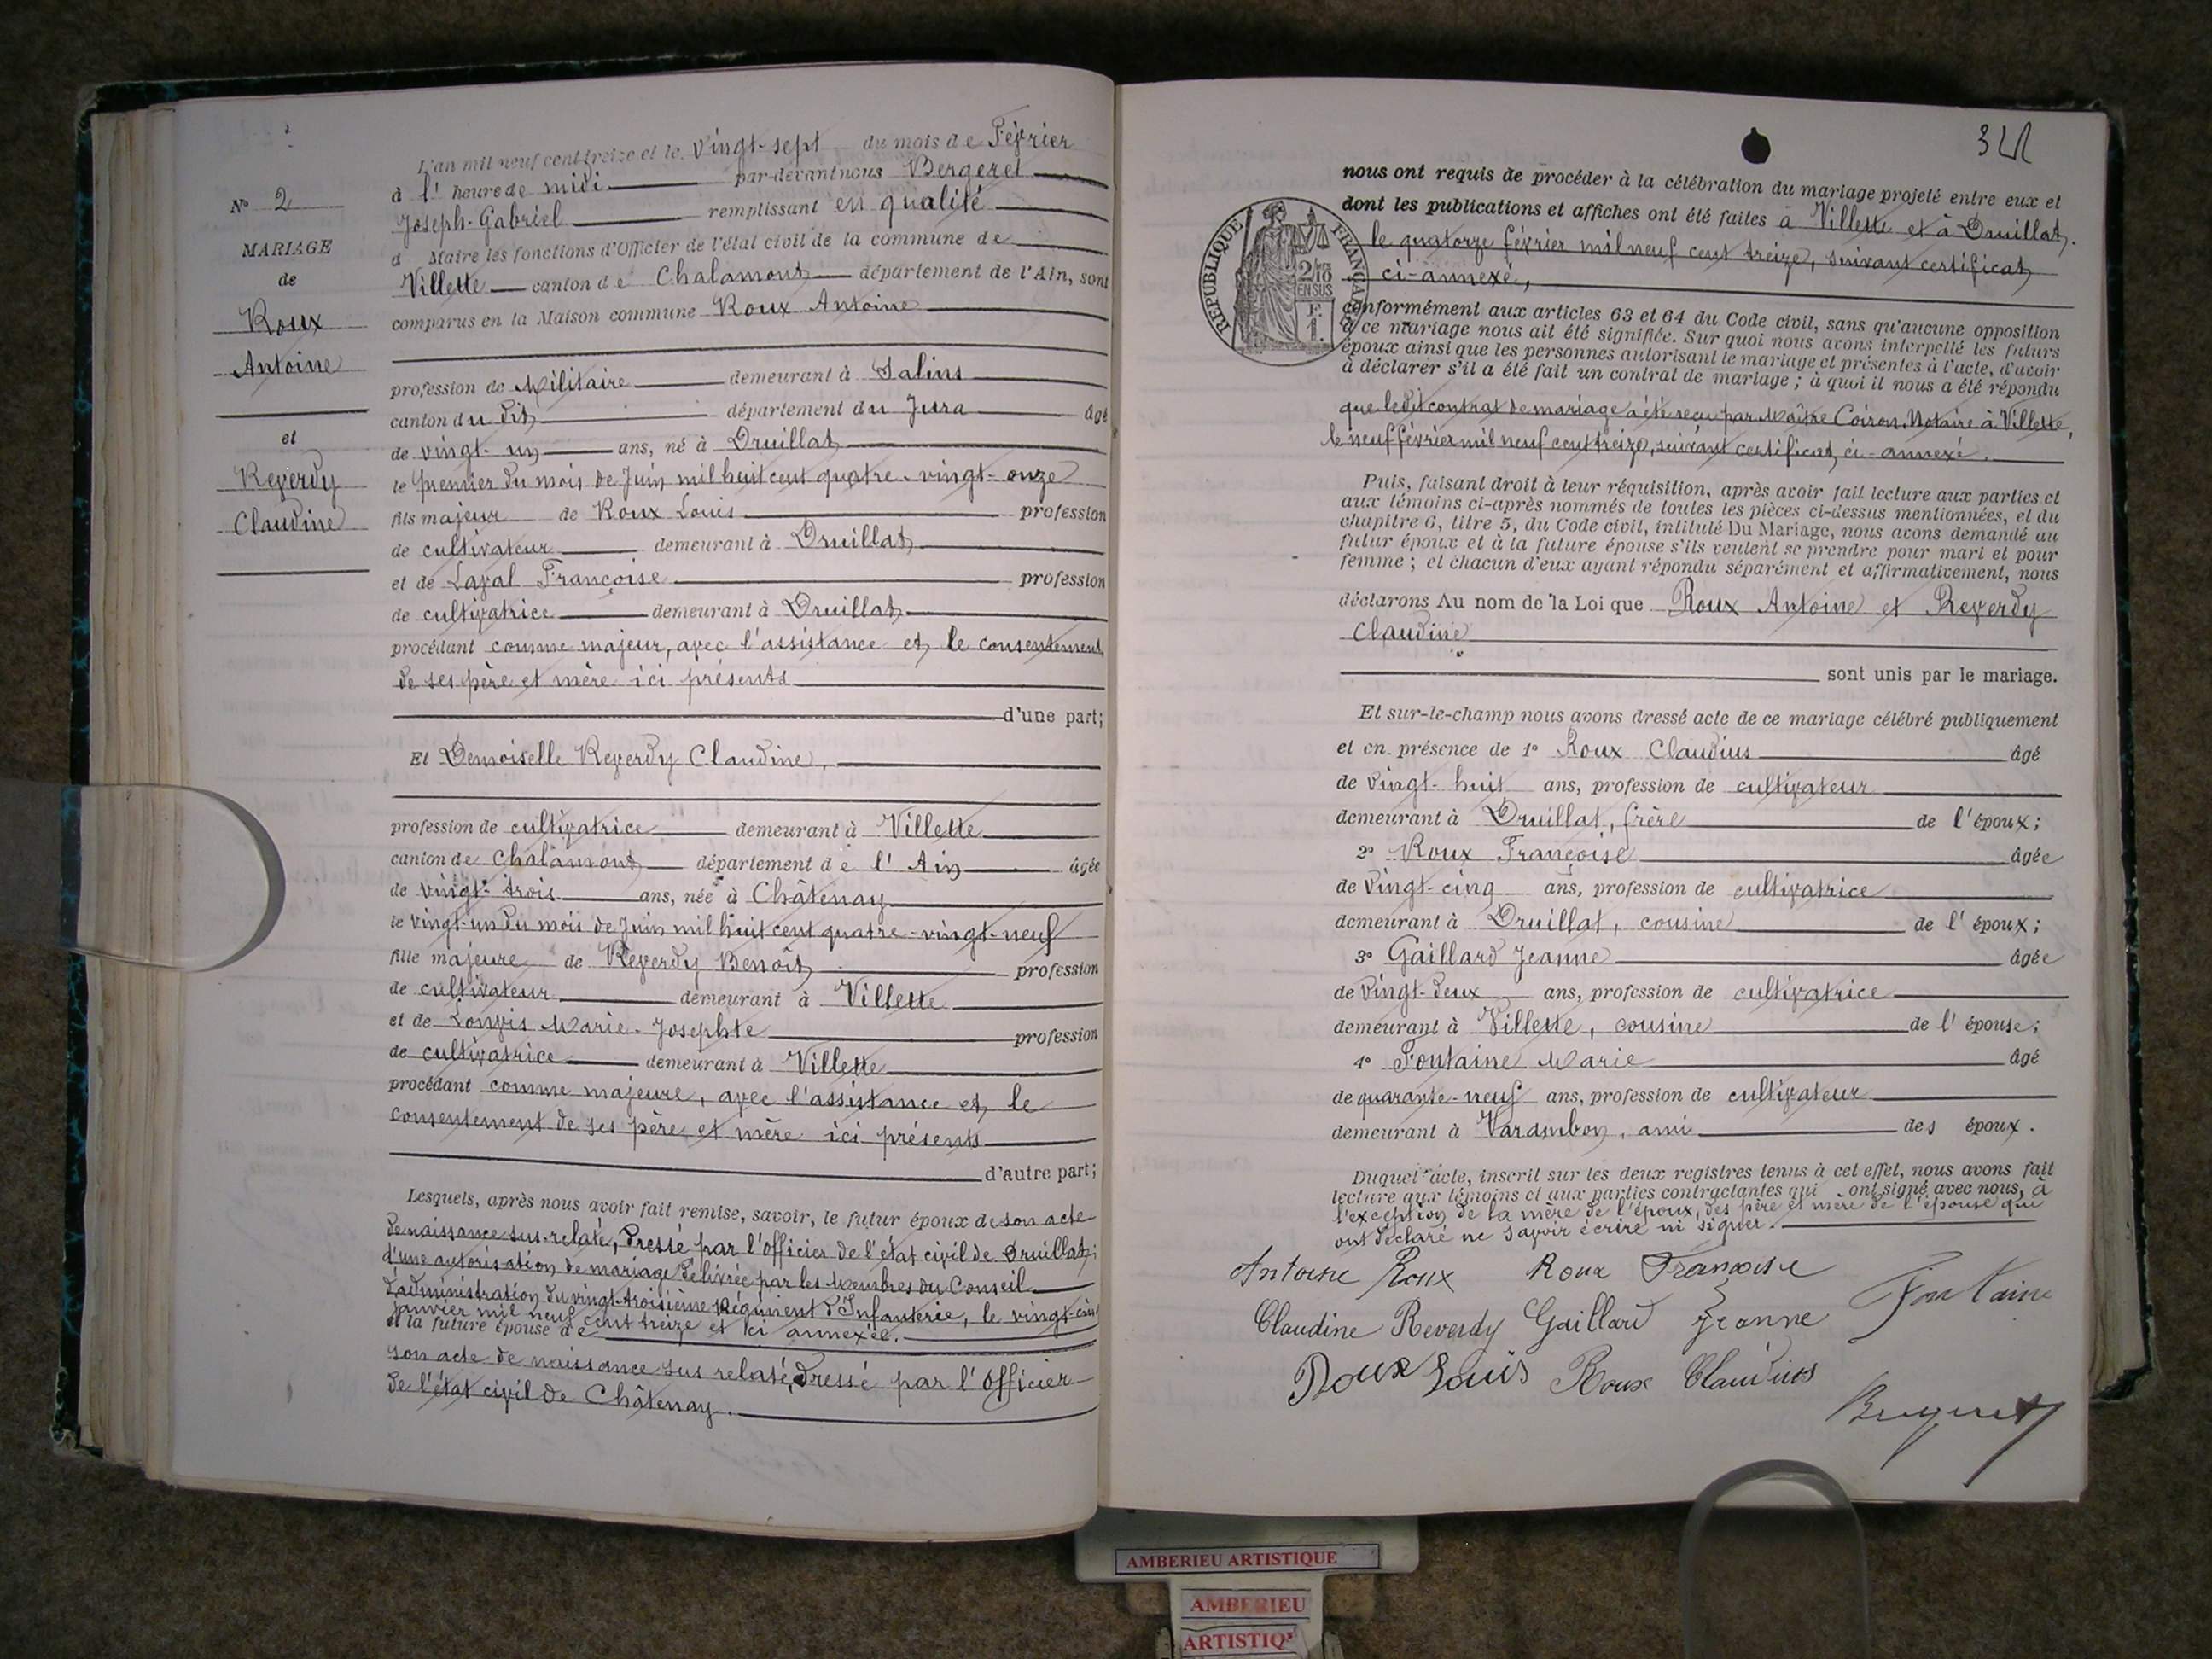 N° 2
MARIAGE
de
Roux
Antoine
et
Reverdy
Claudine
L'an mil neuf cent treize et le vingt-sept du mois de Février
à l'heure de midi par-devant nous Bergeret
Joseph-Gabriel remplissant en qualité
d Maire les fonctions d'Officier de l'état civil de la commune de
Villette canton de Chalamont département de l'Ain, sont
comparus en la Maison commune Roux Antoine
profession de Militaire demeurant à Salins
canton du dit département du Jura âgé
de vingt-un ans, né à Druillat
le premier du mois de Juin mil huit cent quatre-vingt-onze
fils majeur de Roux Louis profession
de cultivateur demeurant à Druillat
et de Laval Françoise profession
de cultivatrice demeurant à Druillat
procédant comme majeur, avec l'assistance et le consentement
de ses père et mère ici présents
d'une part;
Et Demoiselle Reverdy Claudine,
profession de cultivatrice demeurant à Villette
canton de Chalamont département de l'Ain âgée
de vingt-trois ans, née à Châtenay
le vingt-un du mois de Juin mil huit cent quatre-vingt-neuf
fille majeure de Reverdy Benoît profession
de cultivateur demeurant à Villette
et de Marie-Josephte profession
de cultivatrice demeurant à Villette
procédant comme majeure, avec l'assistance et le
consentement de ses père et mère ici présents
d'autre part;
Lesquels, après nous avoir fait remise, savoir, le futur époux de son acte
de naissance sus-relaté, dressé par l'officier de l'état civil de Druillat;
d'une autorisation de mariage délivrée par les Membres du Conseil
d'administration du vingt-troisième Régiment d'Infanterie, le vingt-cinq
janvier mil neuf cent treize et ci annexée.
et la future épouse de
son acte de naissance sus relaté, dressé par l'Officier
de l'état civil de Châtenay.
RÉPUBLIQUE FRANÇAISE
2/10
EN SUS
F.
1.
nous ont requis de procéder à la célébration du mariage projeté entre eux et
dont les publications et affiches ont été faites à Villette et à Druillat,
le quatorze février mil neuf cent treize, suivant certificat
ci-annexé,
conformément aux articles 63 et 64 du Code civil, sans qu'aucune opposition
à ce mariage nous ait été signifiée. Sur quoi nous avons interpellé les futurs
époux ainsi que les personnes autorisant le mariage et présentes à l'acte, d'avoir
à déclarer s'il a été fait un contrat de mariage; à quoi il nous a été répondu
que ledit contrat de mariage a été reçu par Maître Coiron, Notaire à Villette,
le neuf février mil neuf cent treize, suivant certificat ci-annexé.
Puis, faisant droit à leur réquisition, après avoir fait lecture aux parties et
aux témoins ci-après nommés de toutes les pièces ci-dessus mentionnées, et du
chapitre 6, titre 5, du Code civil, intitulé Du Mariage, nous avons demandé au
futur époux et à la future épouse s'ils veulent se prendre pour mari et pour
femme; et chacun d'eux ayant répondu séparément et affirmativement, nous
déclarons Au nom de la Loi que Roux Antoine et Reverdy
Claudine
sont unis par le mariage.
Et sur-le-champ nous avons dressé acte de ce mariage célébré publiquement
et en présence de 1° Roux Claudius âgé
de vingt-huit ans, profession de cultivateur
demeurant à Druillat, frère de l'époux;
2° Roux Françoise âgée
de vingt-cinq ans, profession de cultivatrice
demeurant à Druillat, cousine de l'époux;
3° Gaillard Jeanne âgée
de vingt-deux ans, profession de cultivatrice
demeurant à Villette, cousine de l'épouse;
4° Fontaine Marie âgé
de quarante-neuf ans, profession de cultivateur
demeurant à Varambon, ami des époux.
Duquel acte, inscrit sur les deux registres tenus à cet effet, nous avons fait
lecture aux témoins et aux parties contractantes qui ont signé avec nous, à
l'exception de la mère de l'époux, des père et mère de l'épouse qui
ont déclaré ne savoir écrire ni signer.
Antoine Roux Roux Francoise Fontaine
Claudine Reverdy Gaillard Jeanne
Roux Louis Roux Claudius
Bergeret
AMBERIEU ARTISTIQUE
AMBERIEU
ARTISTIQ